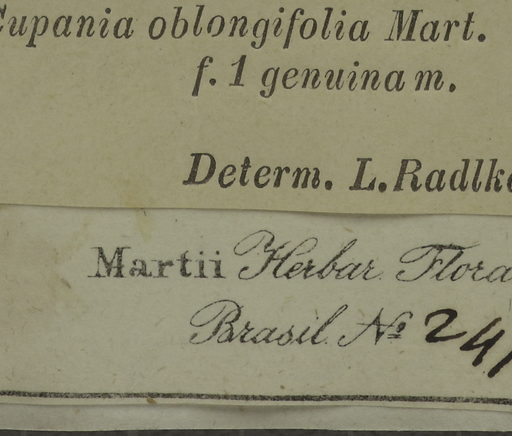 Cupania oblongifolia Mart.
f. 1 genuina m.
Determ. L. Radlk
Martii Herbar. Flora
Brasil. No